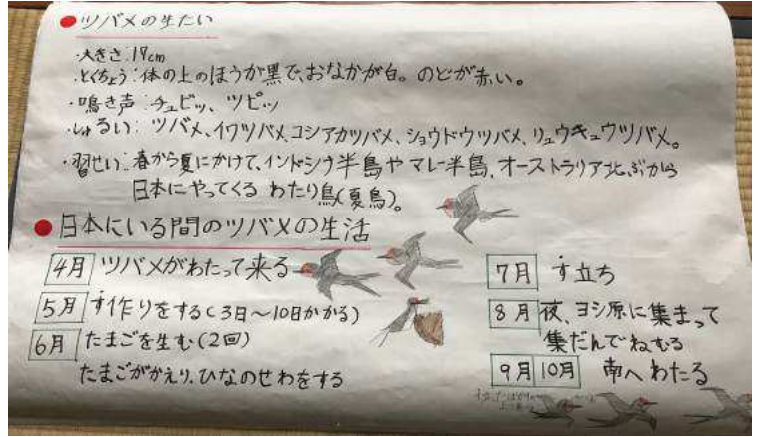 ●ツバメの生たい
・大きさ:17cm
・とくちょう:体の上のほうが黒で、おなかが白。のどが赤い。
・鳴き声:チュビッ、ツピッ
・しゅるい:ツバメ、イワツバメ、コシアカツバメ、ショウドウツバメ、リュウキュウツバメ。
・習せい:春から夏にかけて、インドシナ半島やマレー半島、オーストラリア北ぶから
日本にやってくるわたり鳥(夏鳥)。
●日本にいる間のツバメの生活
4月 ツバメがわたって来る
5月 す作りをする(3日〜10日かかる)
6月 たまごを生む(2回)
たまごがかえり、ひなのせわをする
7月 す立ち
8月 夜、ヨシ原に集まって
集だんでねむる
9月 10月 南へわたる